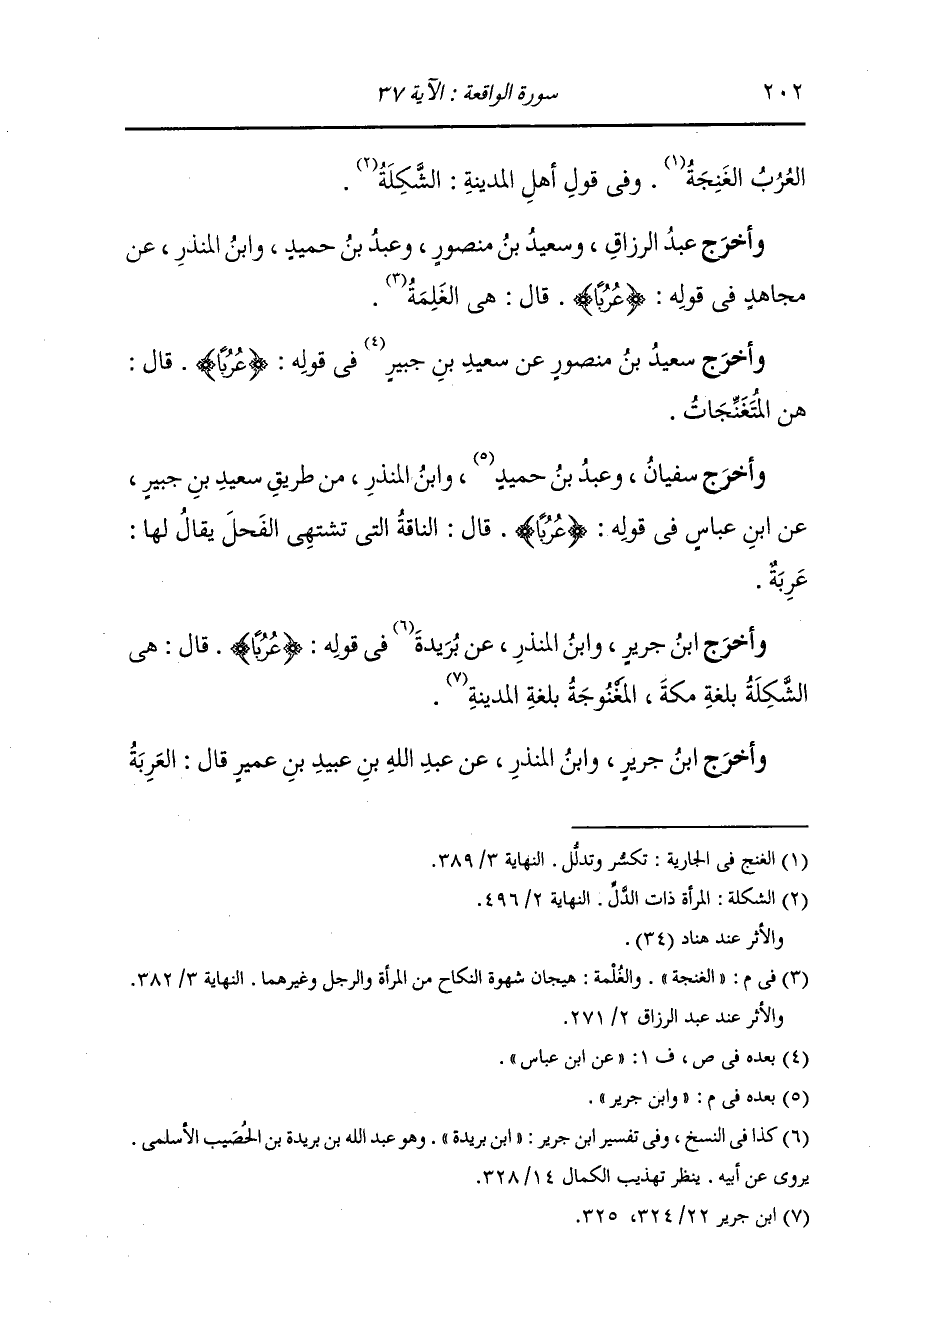 ٢٠٢ سورة الواقعة : الآية ٣٧
العُرُبُ الغَنِجَةُ(١) . وفى قولِ أهلِ المدينةِ : الشَّكِلَةُ(٢) .
وأخرَج عبدُ الرزاقِ ، وسعيدُ بنُ منصورٍ ، وعبدُ بنُ حميدٍ ، وابنُ المنذرِ ، عن
مجاهدٍ فى قولِه : ﴿عُرُبًا﴾ . قال : هى الغَلِمَةُ(٣) .
وأخرَج سعيدُ بنُ منصورٍ عن سعيدِ بنِ جبيرٍ(٤) فى قولِه : ﴿عُرُبًا﴾ . قال :
هن المُتَغَنِّجَاتُ .
وأخرَج سفيانُ ، وعبدُ بنُ حميدٍ(٥) ، وابنُ المنذرِ ، من طريقِ سعيدِ بنِ جبيرٍ ،
عن ابنِ عباسٍ فى قولِه : ﴿عُرُبًا﴾ . قال : الناقةُ التى تشتهِى الفَحلَ يقالُ لها :
عَرِبَةٌ .
وأخرَج ابنُ جريرٍ ، وابنُ المنذرِ ، عن بُرَيدةَ(٦) فى قولِه : ﴿عُرُبًا﴾ . قال : هى
الشَّكِلَةُ بلغةِ مكةَ ، المَغْنُوجَةُ بلغةِ المدينةِ(٧) .
وأخرَج ابنُ جريرٍ ، وابنُ المنذرِ ، عن عبدِ اللهِ بنِ عبيدِ بنِ عميرٍ قال : العَرِبَةُ
(١) الغنج فى الجارية : تكسُّر وتدلُّل . النهاية ٣/ ٣٨٩.
(٢) الشكلة : المرأة ذات الدَّلِّ . النهاية ٢/ ٤٩٦.
والأثر عند هناد (٣٤) .
(٣) فى م : « الغنجة » . والغُلْمة : هيجان شهوة النكاح من المرأة والرجل وغيرهما . النهاية ٣/ ٣٨٢.
والأثر عند عبد الرزاق ٢/ ٢٧١.
(٤) بعده فى ص ، ف ١: « عن ابن عباس » .
(٥) بعده فى م : « وابن جرير » .
(٦) كذا فى النسخ ، وفى تفسير ابن جرير : « ابن بريدة » . وهو عبد الله بن بريدة بن الحُصَيب الأسلمى .
يروى عن أبيه . ينظر تهذيب الكمال ١٤/ ٣٢٨.
(٧) ابن جرير ٢٢/ ٣٢٤، ٣٢٥.